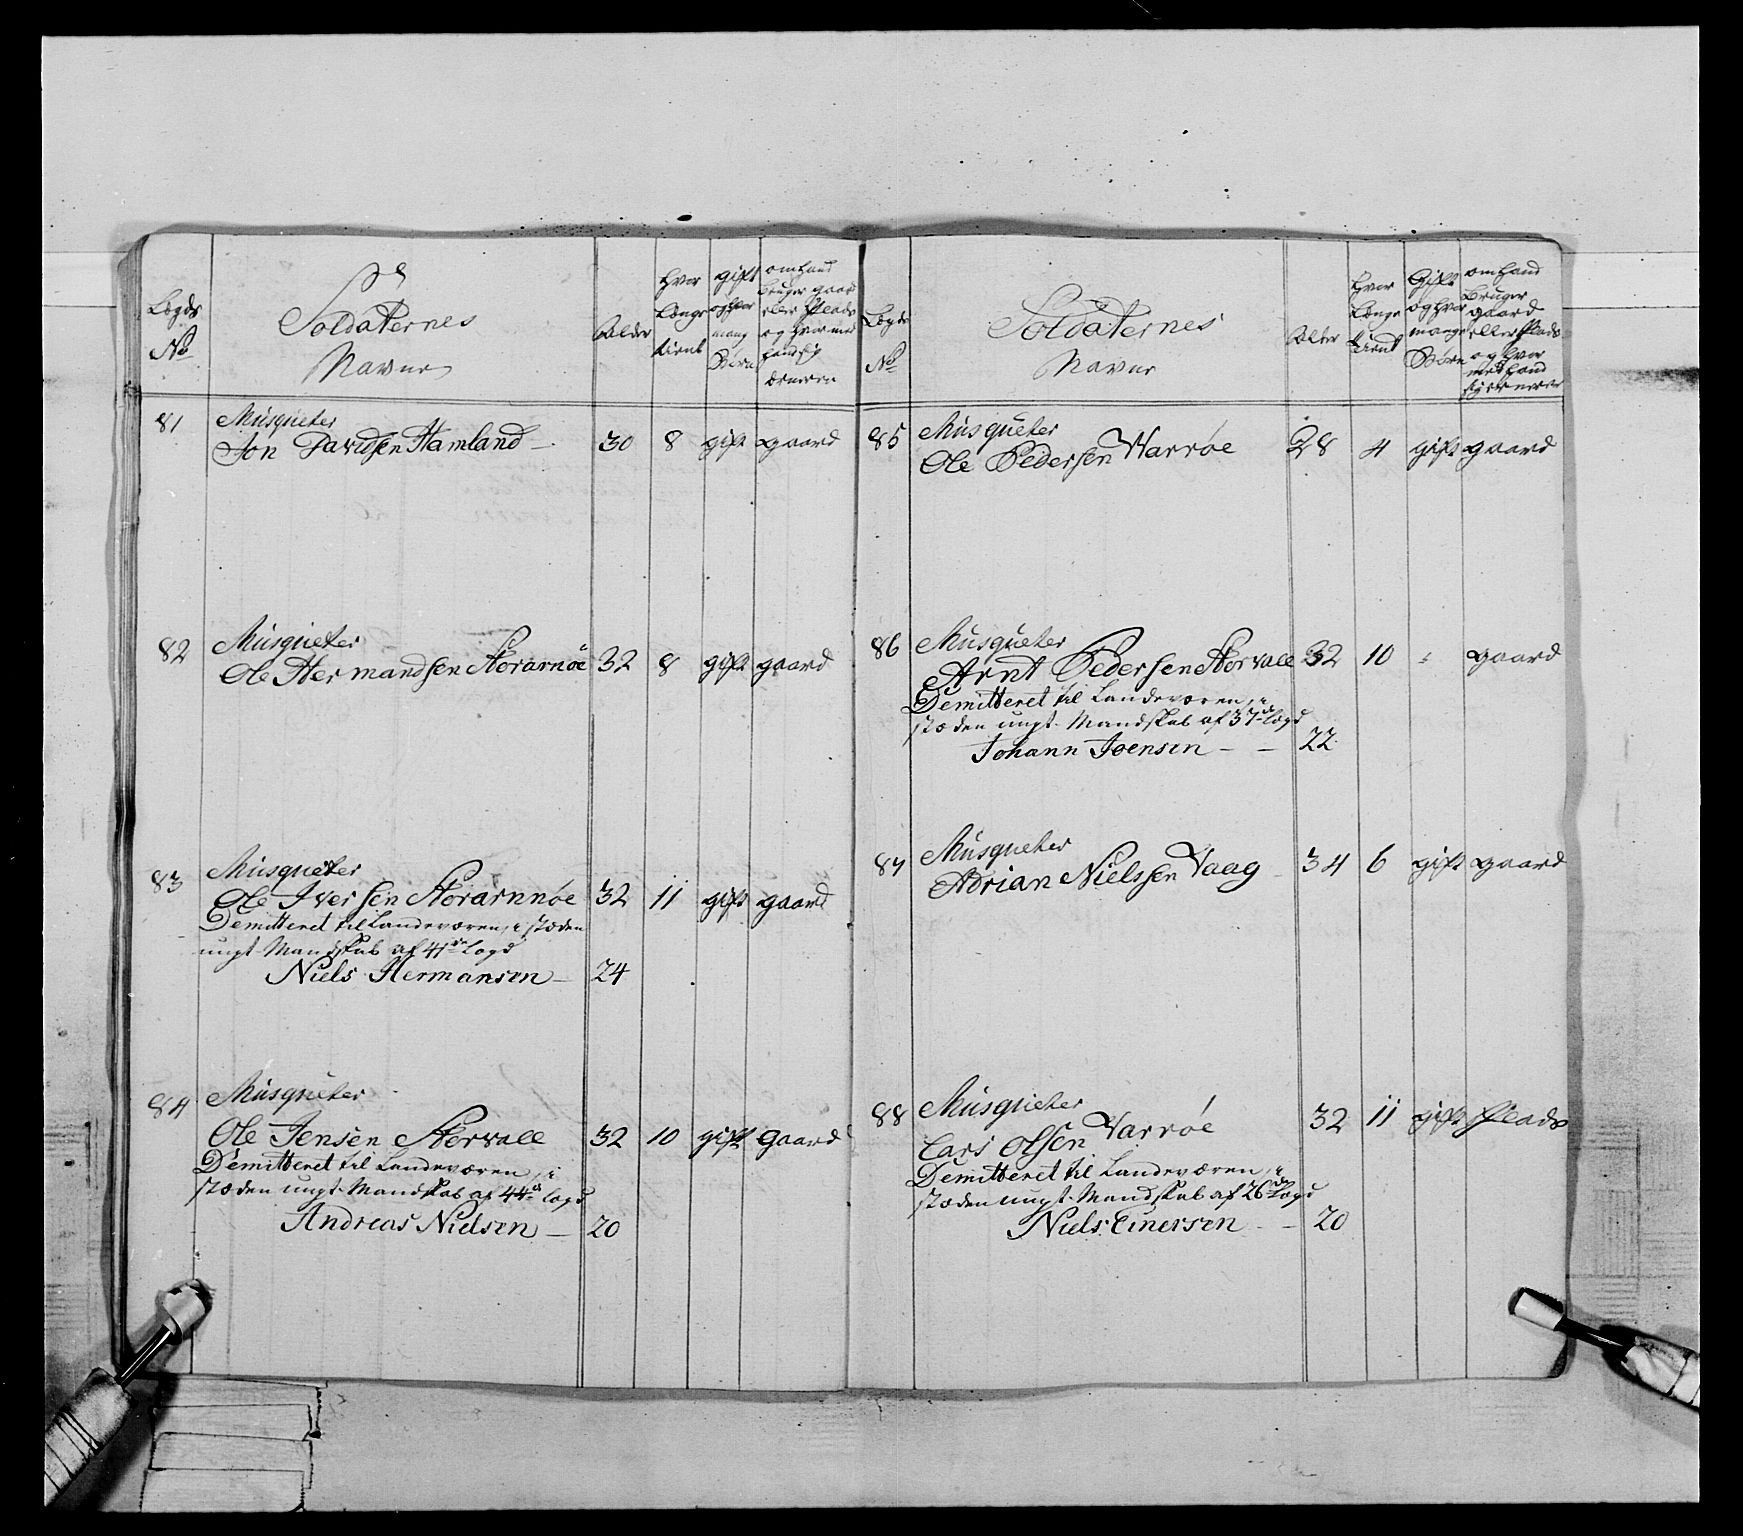 Lægds No
Soldaternes Navne
Alder
Hvor længe tient
gift og hvor mang Børn
om hand bruger gaard eller Plads og hvor med hand sig ernærer
81 Musqueter
Jon Davidsen Hamland — 30 8 gift gaard
82 Musqueter
Ole Hermandsen Storarnøe 32 8 gift gaard
83 Musqueter
Ole Iversen Storarnnøe 32 11 gift gaard
Demitteret til Landeværen, i stæden
ungt Mandskab af 41de Lægd
Niels Hermansen — 24
84 Musqueter
Ole Jensen Storvall 32 10 gift gaard
Demitteret til Landeværen, i
stæden ungt Mandskab af 44de lægd
Andreas Nielsen — 20
Lægds No
Soldaternes Navne
Alder
Hvor længe tient
Gift og hvor mange Børn
om hand bruger gaard eller Plads og hvor med hand sig ernærer
85 Musqueter
Ole Pedersen Warrøe 28 4 gift gaard
86 Musqueter
Arnt Pedersen Storvall 32 10 gaard
Demitteret til Landeværen, i
stæden ungt Mandskab af 37de lægd
Johann Joensen — — 22
87 Musqueter
Adrian Nielssen Vaag 34 6 gift gaard
88 Musqueter
Lars Olsen Varrøe 32 11 gift Plads
Demitteret til Landeværen, i
stæden ungt Mandskab af 26de Lægd
Niels Einersen — 20